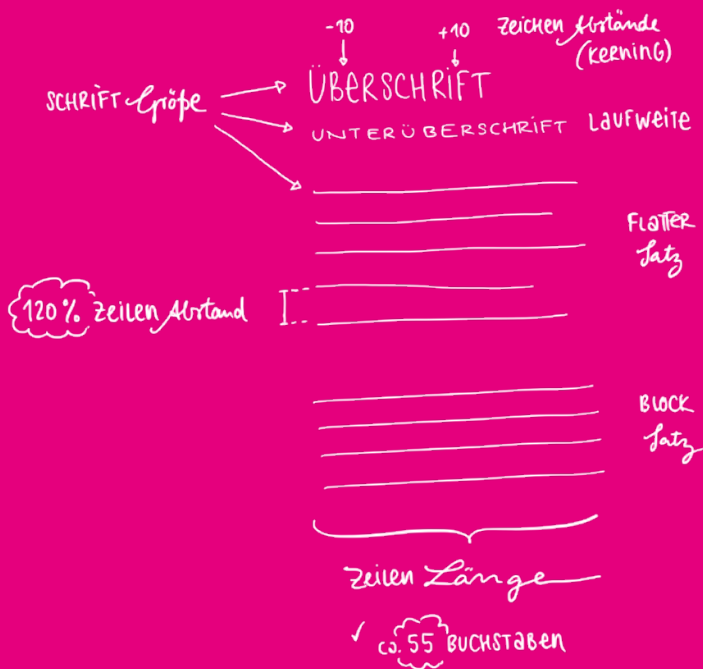 -10 +10 Zeichen Abstände
(Kerning)
SCHRIFT Größe
ÜBERSCHRIFT
UNTERÜBERSCHRIFT Laufweite
Flatter
Satz
120% Zeilen Abstand
Block
Satz
Zeilen Länge
✓ ca. 55 BUCHSTABEN